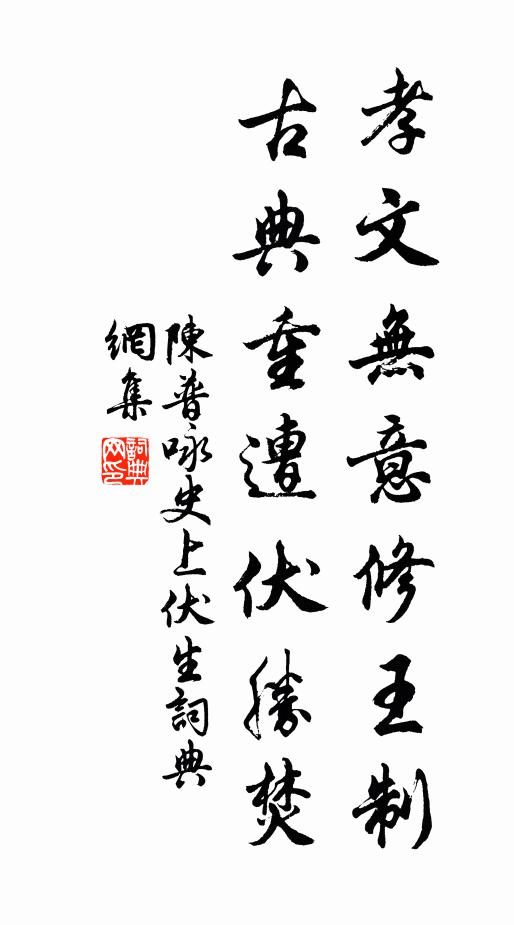 孝文無意修王制
古典重遭伏勝焚
陳普咏史上伏生詞典
網集
詞典网印